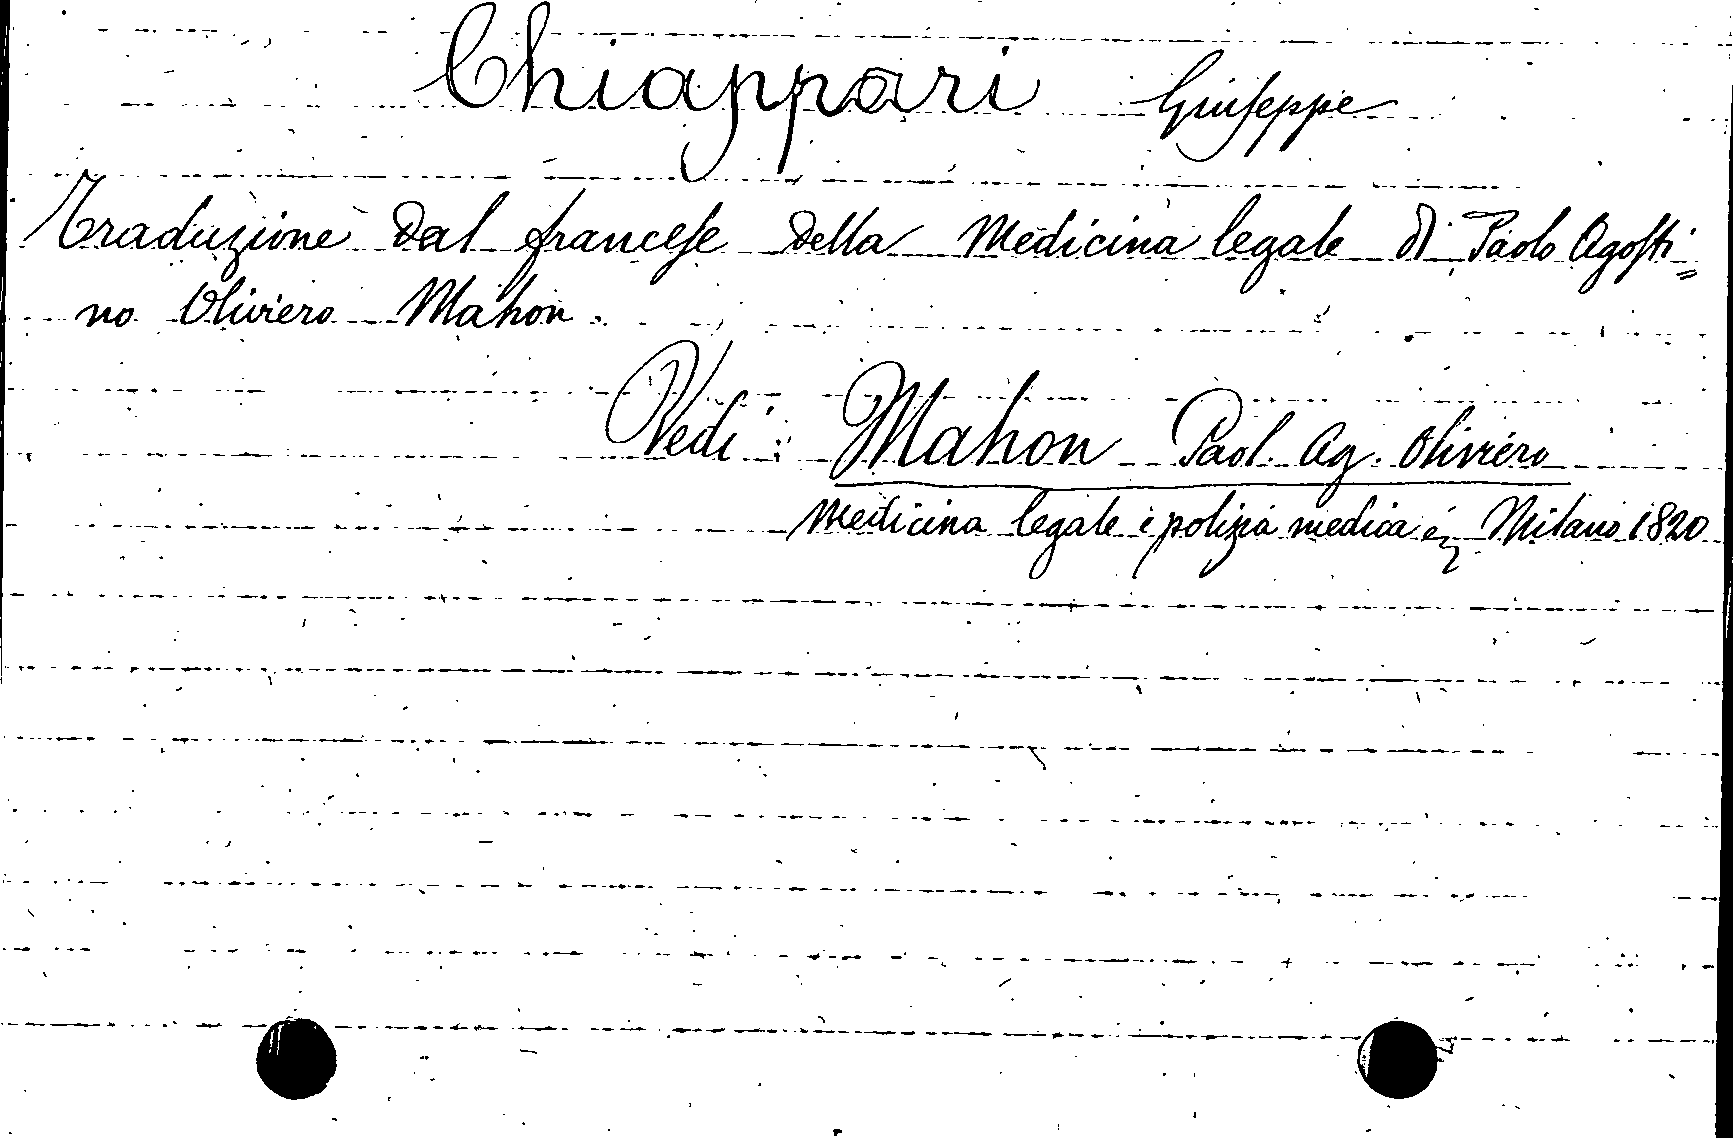 Chiappari Giuseppe
Traduzione dal francese della Medicina legale di Paolo Agosti=
no Oliviero Mahon.
Vedi: Mahon Paol. Ag. Oliviero
Medicina legale e polizia medica Milano 1820